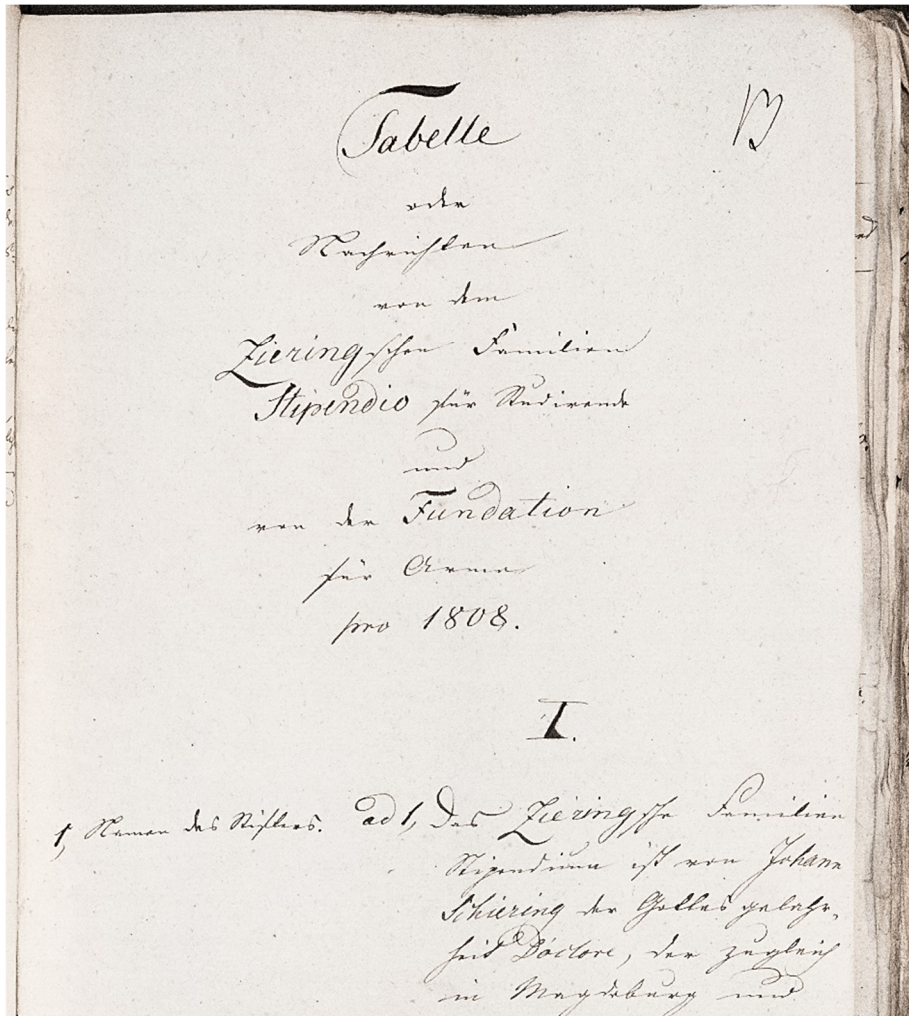 13
Tabelle
oder
Nachrichten
von dem
Zieringschen Familien
Stipendio für Studirende
und
von der Fundation
für Arme
pro 1808.
I.
1, Namen des Stifters. ad 1, Das Zieringsche Familien
Stipendium ist von Johann
Schiering der Gottesgelahr-
heit Doctore, der zugleich
in Magdeburg und